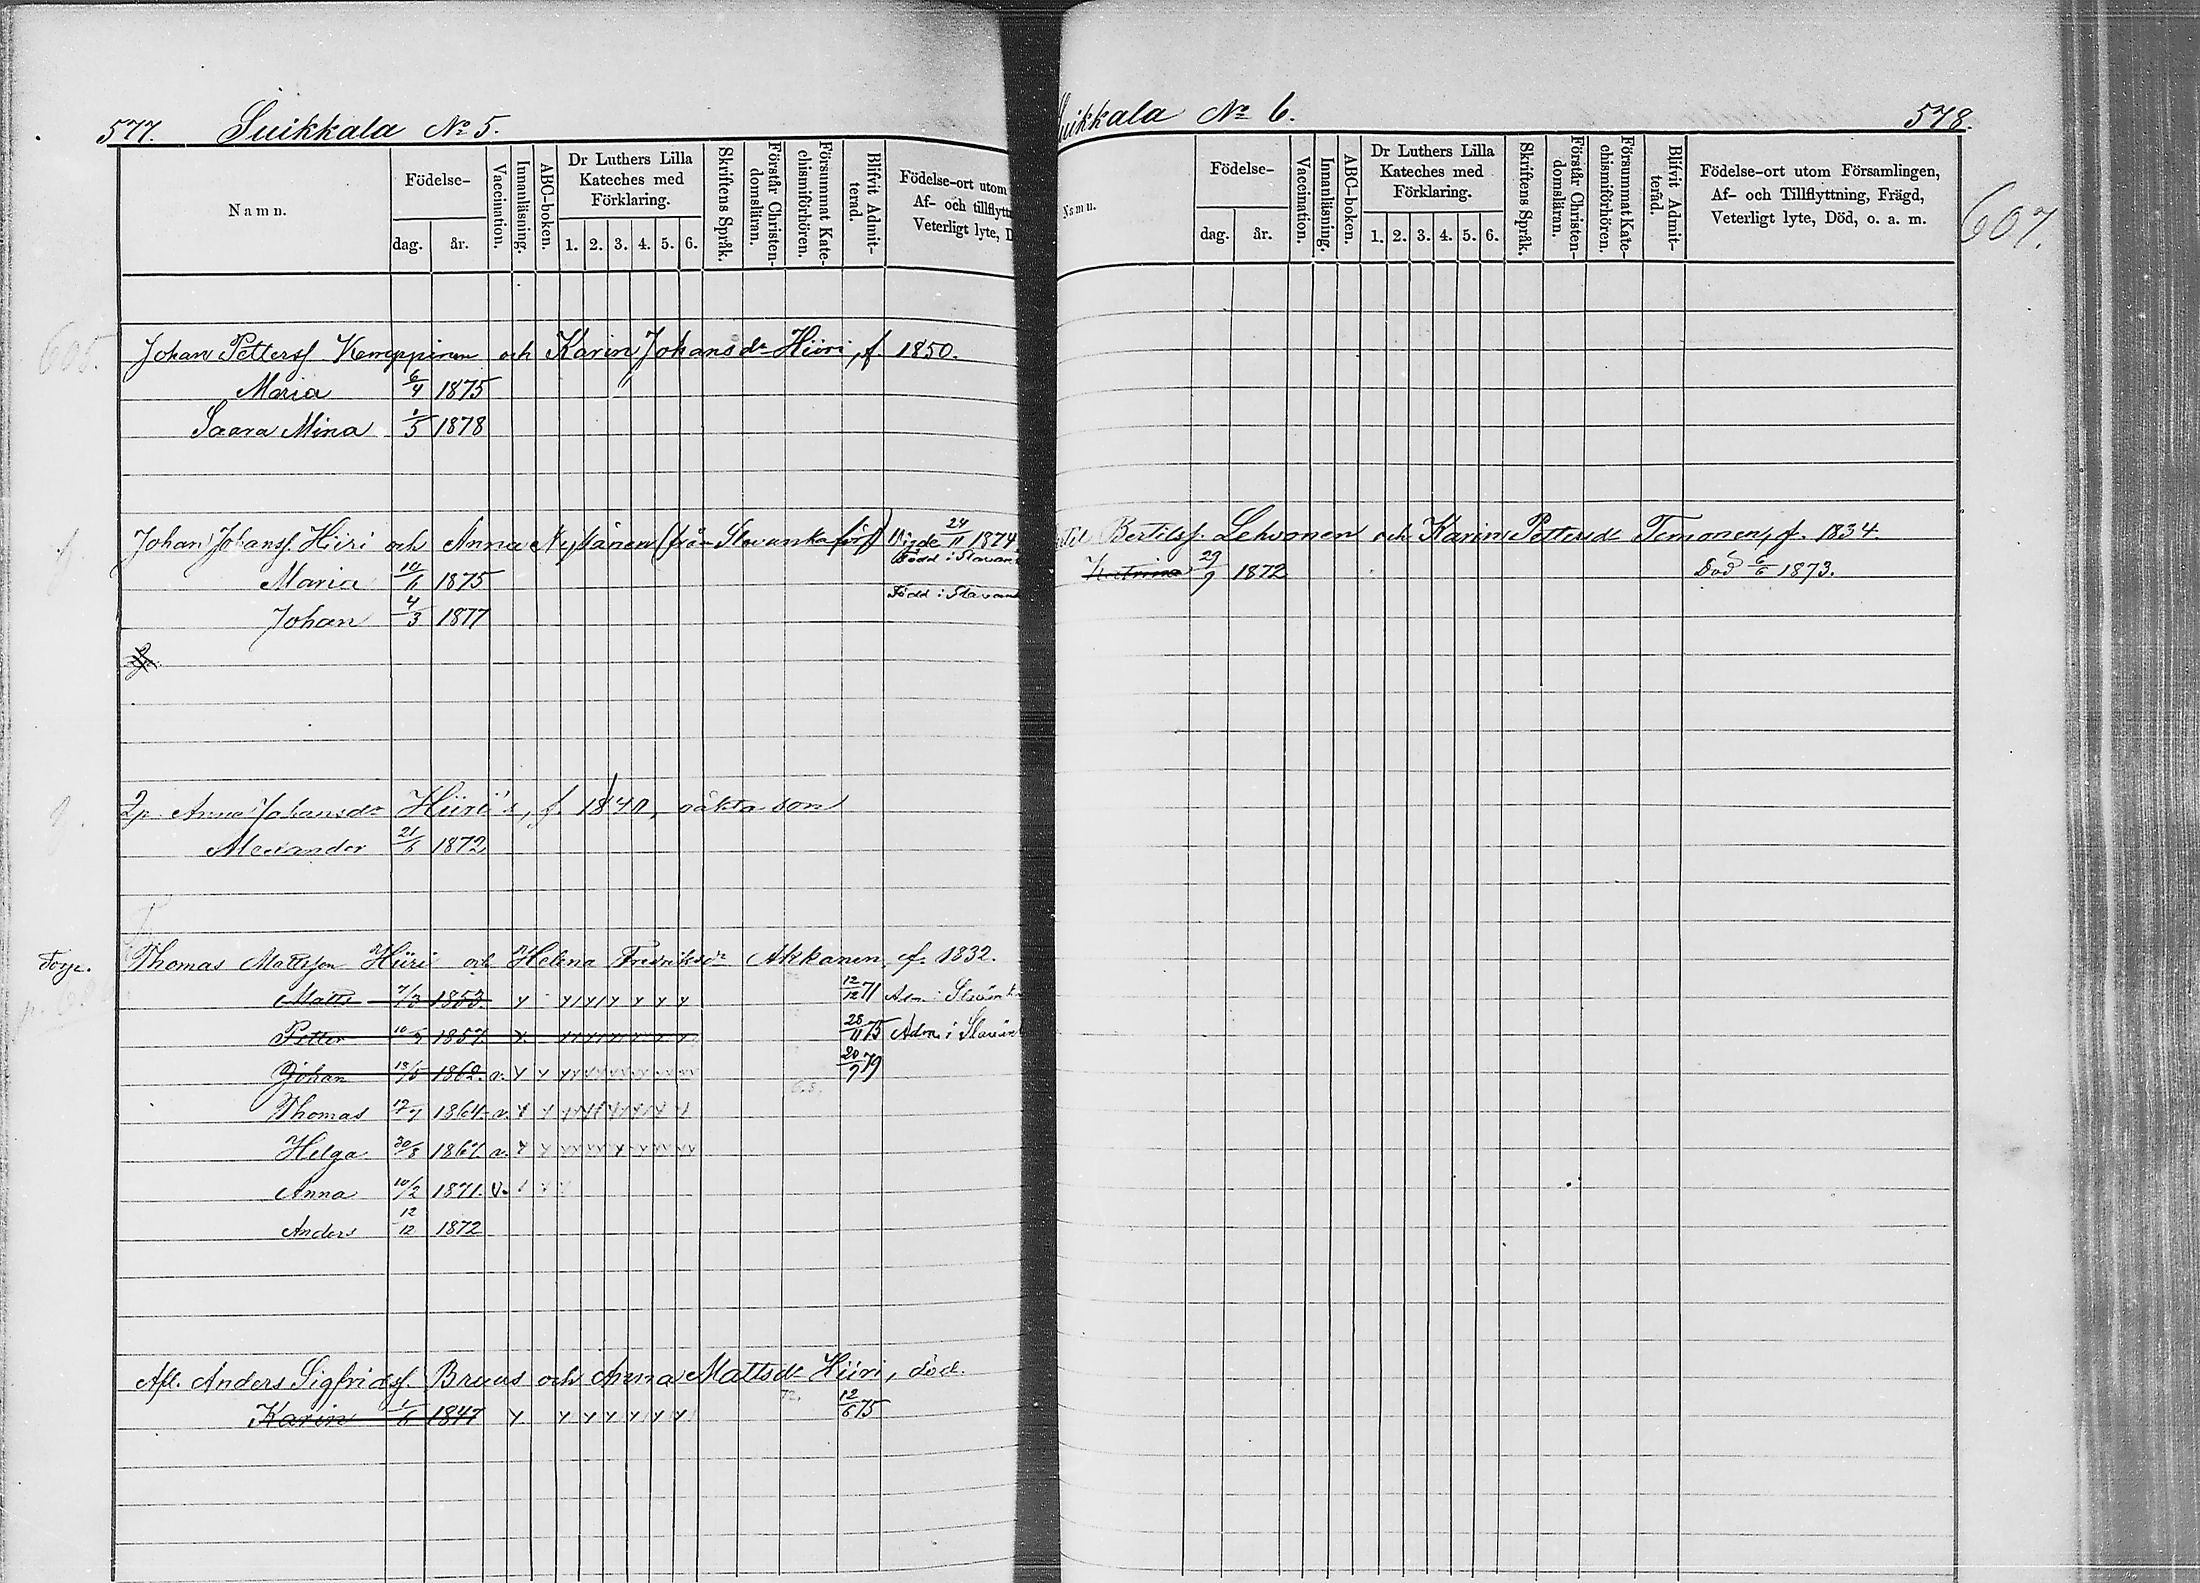 577. Suikkala No 5.
Namn.
Födelse-
dag. år.
Vaccination.
Innanläsning.
ABC-boken.
Dr Luthers Lilla Kateches med Förklaring.
1. 2. 3. 4. 5. 6.
Skriftens Språk.
Förstår Christen-domsläran.
Försummat Kate-chismiförhören.
Blifvit Admit-terad.
Födelse-ort utom
Af- och tillflytt
Veterligt lyte, D
605.
Johan Petterss Kemppinen och Karin Johansdr Hiiri, f. 1850.
Maria 6/4 1875
Saara Mina 1/5 1878
Johan Johanss. Hiiri och Anna Nyssönen (från Slavanka förs) Vigde 24/11 1874
Maria 10/6 1875 Född i Slavan
Johan 4/3 1877 Född i Slavank
Anna Johansdr Hiiri's, f. 1840, oäkta son
Alexander 21/6 1872
Torp. Thomas Mattsson Hiiri och Helena Fredriksdr Akkanen, f. 1832.
Matts 7/3 1853 12/12 71 Adm i Slavänk
Petter 10/5 1857 28/11 75 Adm i Slavänk
Johan 13/5 1862. v. 20/9 79
Thomas 1864 v.
Helga 30/8 1867 v.
Anna 10/2 1871. v.
Anders 12/12 1872
Afl. Anders Sigfridss. Bruus och Anna Mattsdr Hiiri, död.
Karin 1/6 1847 72. 12/6 75
uikkala No 6. 578.
607.
Namn.
Födelse-
dag. år.
Vaccination.
Innanläsning.
ABC-boken.
Dr Luthers Lilla Kateches med Förklaring.
1. 2. 3. 4. 5. 6.
Skriftens Språk.
Förstår Christen-domsläran.
Försummat Kate-chismiförhören.
Blifvit Admit-terad.
Födelse-ort utom Församlingen,
Af- och Tillflyttning, Frägd,
Veterligt lyte, Död, o. a. m.
Bertilss. Lehvonen och Karin Pettersdr Temonen, f. 1834.
Katrina 29/9 1872 Död 6/6 1873.